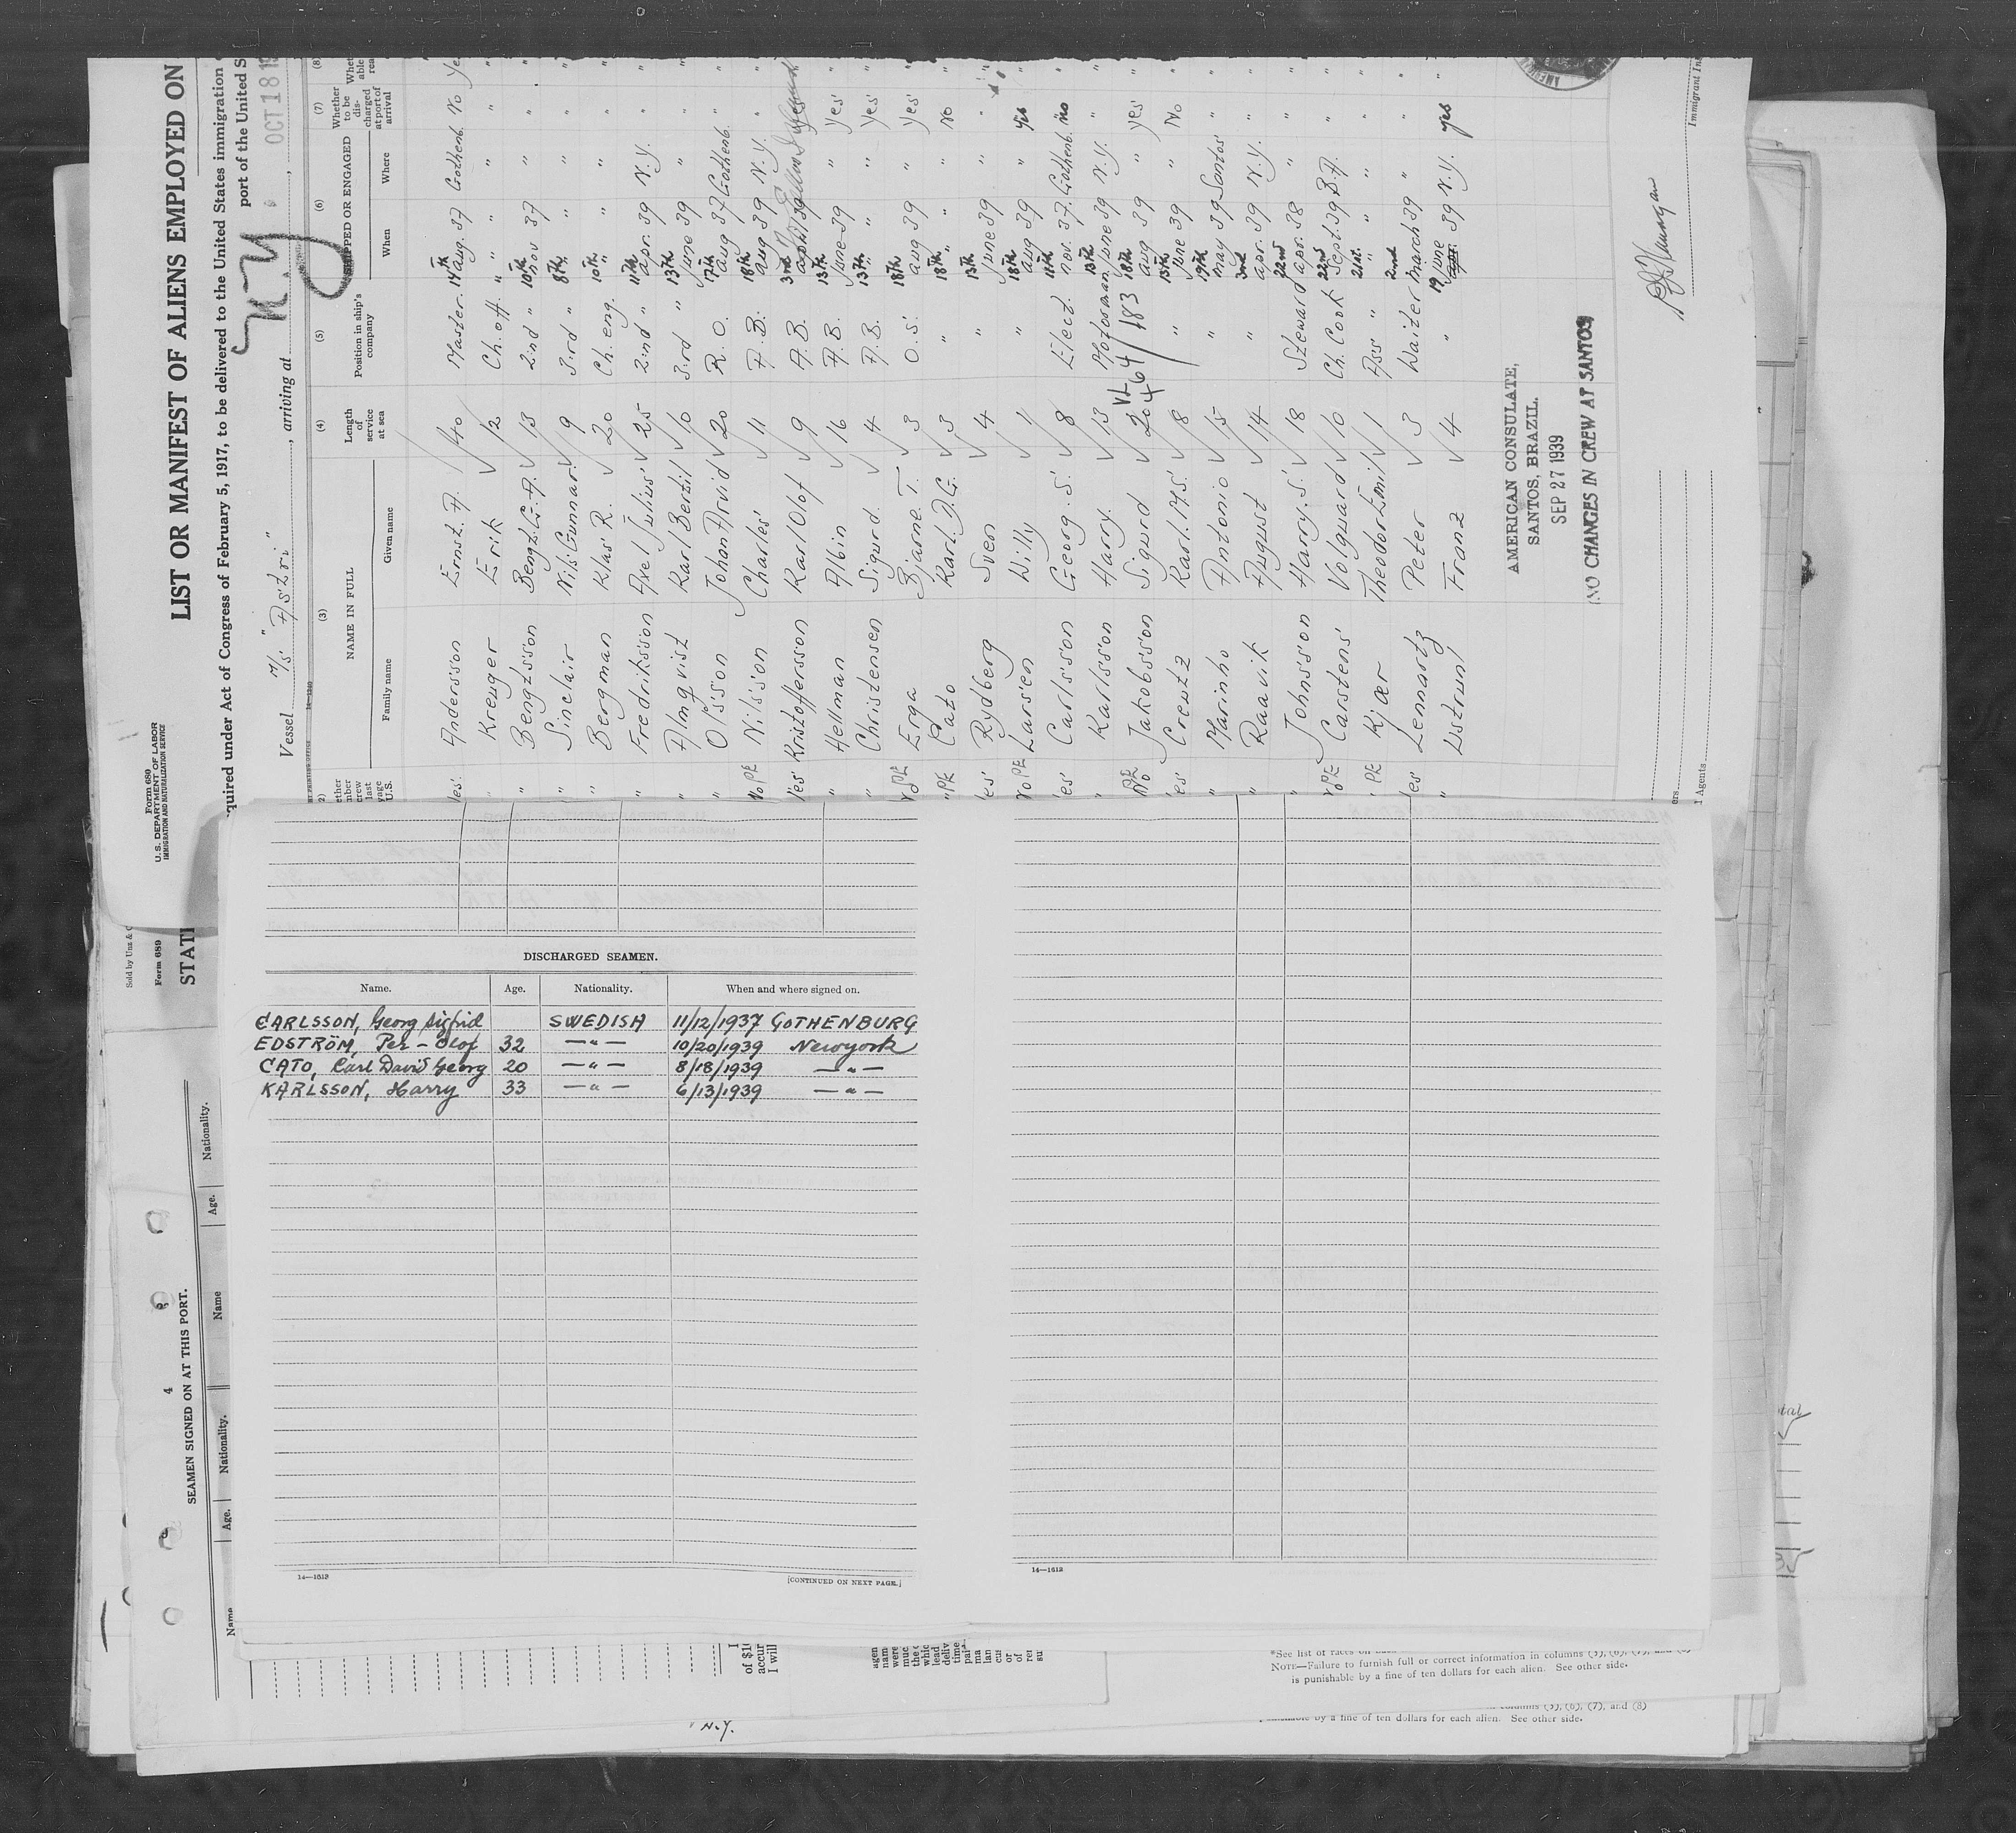 LIST OR MANIFEST OF ALIENS EMPLOYED ON
quired under Act of Congress of February 5, 1917, to be delivered to the United States immigration
port of the United S
Form 680
U. S. DEPARTMENT OF LABOR
IMMIGRATION AND NATURALIZATION SERVICE
Vessel M/S "Astri", arriving at N Y OCT 18 19
(3) (4) (5) (6) (7) (8)
NAME IN FULL Length of service at sea Position in ship's company SHIPPED OR ENGAGED Whether to be discharged at port of arrival
Family name Given name When Where
es. Andersson Ernst. A. 40 Master. 14th aug. 37 Gothenb. No Yes
" Kreuger Erik 12 Ch. off. " " " " "
" Bengtsson Bengt G. A. 13 2nd " 10th nov 37 " " "
" Sinclair Nils Gunnar. 9 3rd " 8th " " " "
" Bergman Klas R. 20 Ch. eng. 10th " " " "
" Fredriksson Axel Julius 25 2nd " 11th apr. 39 N.Y. " "
" Almqvist Karl Bertil 10 3rd " 13th June 39 " " "
" Olsson Johan Arvid 20 R. O. 17th aug 37 Gothenb. "
No PE Nilsson Charles 11 A. B. 18th aug 39 N. Y. " "
es Kristoffersson Karl Olof 9 A. B. 3rd
" Hellman Albin 16 A. B. 13th June 39 " yes "
" Christensen Sigurd. 4 A. B. 13th " " yes "
No PE Erga Bjarne. T. 3 O. S. 18th aug 39 " yes "
" PE Cato Karl. D. G. 3 " 18th " " No "
es Rydberg Sven 4 " 13th June 39 " "
No PE Larsen Willy 1 " 18th aug 39 " yes "
es Carlsson Georg. S. 8 Elect. 11th nov. 37. Gothenb. no "
" Karlsson Harry. 13 Motorman 13th June 39 N.Y. " "
No PE Jakobsson Sigurd 20 464/183 18th aug 39 " yes "
es Creutz Karl. A. S. 8 " 13th June 39 " No "
" Marinho Antonio 15 " 19th may 39 Santos "
" Raavik August 14 " 3rd apr. 39 N.Y. " "
" Johnsson Harry. S. 18 Steward 22nd apr. 38 " " "
No PE Carstens Volquard 10 Ch. Cook 22nd Sept. 39 B.A. " "
" PE Kjær Theodor Emil 1 Ass " 21st. " " " "
es Lennartz Peter 3 Waiter 2nd march 39 " " "
" Franz 4 " 19 June 39 N.Y. yes "
AMERICAN CONSULATE,
SANTOS, BRAZIL.
SEP 27 1939
(NO CHANGES IN CREW AT SANTOS)
Immigrant In
ers
l Agents
Sold by Unz & C
Form 689
STATI
4
SEAMEN SIGNED ON AT THIS PORT.
Name Age. Nationality. Name Age. Nationality.
DISCHARGED SEAMEN.
Name. Age. Nationality. When and where signed on.
CARLSSON, Georg Sigfrid SWEDISH 11/12/1937 GOTHENBURG
EDSTRÖM, Per-Olof 32 —"— 10/20/1939 Newyork
CATO, Carl David Georg 20 —"— 8/18/1939 —"—
KARLSSON, Harry 33 —"— 6/13/1939 —"—
14—1613
[CONTINUED ON NEXT PAGE.]
14—1613
of $1
accur
I will
NOTE—Failure to furnish full or correct information in columns (5), (6), (7), and (8)
is punishable by a fine of ten dollars for each alien. See other side.
columns (5), (6), (7), and (8)
by a fine of ten dollars for each alien. See other side.
" N.Y.